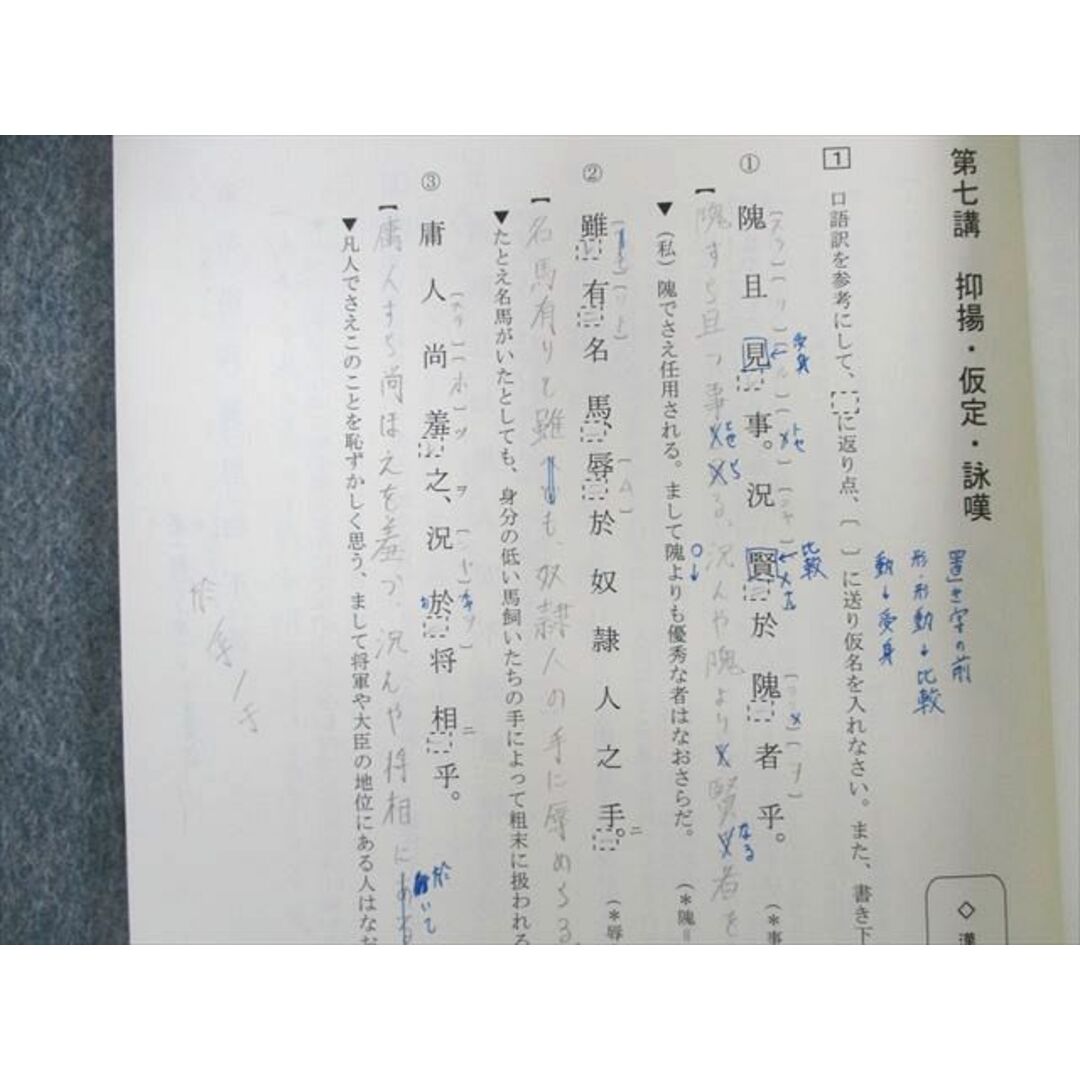 第七講 抑揚・仮定・詠嘆
置き字の前
形・形動→比較
動→受身
◇ 漢
1 口語訳を参考にして、に返り点、〔 〕に送り仮名を入れなさい。また、書き下
受身
比較
① 隗且見事。況賢於隗者乎。
(*事
【隗すら且つ事る、況んや隗より賢なる者を
▼(私)隗でさえ任用される。まして隗よりも優秀な者はなおさらだ。
(*隗=
② 雖有名馬、辱於奴隷人之手。
(*辱
【名馬有りと雖も、奴隷人の手に辱められる
▼たとえ名馬がいたとしても、身分の低い馬飼いたちの手によって粗末に扱われる
③ 庸人尚羞之、況於将相乎。
【庸人すら尚ほ之を羞づ、況んや将相に於いて
▼凡人でさえこのことを恥ずかしく思う、まして将軍や大臣の地位にある人はなお